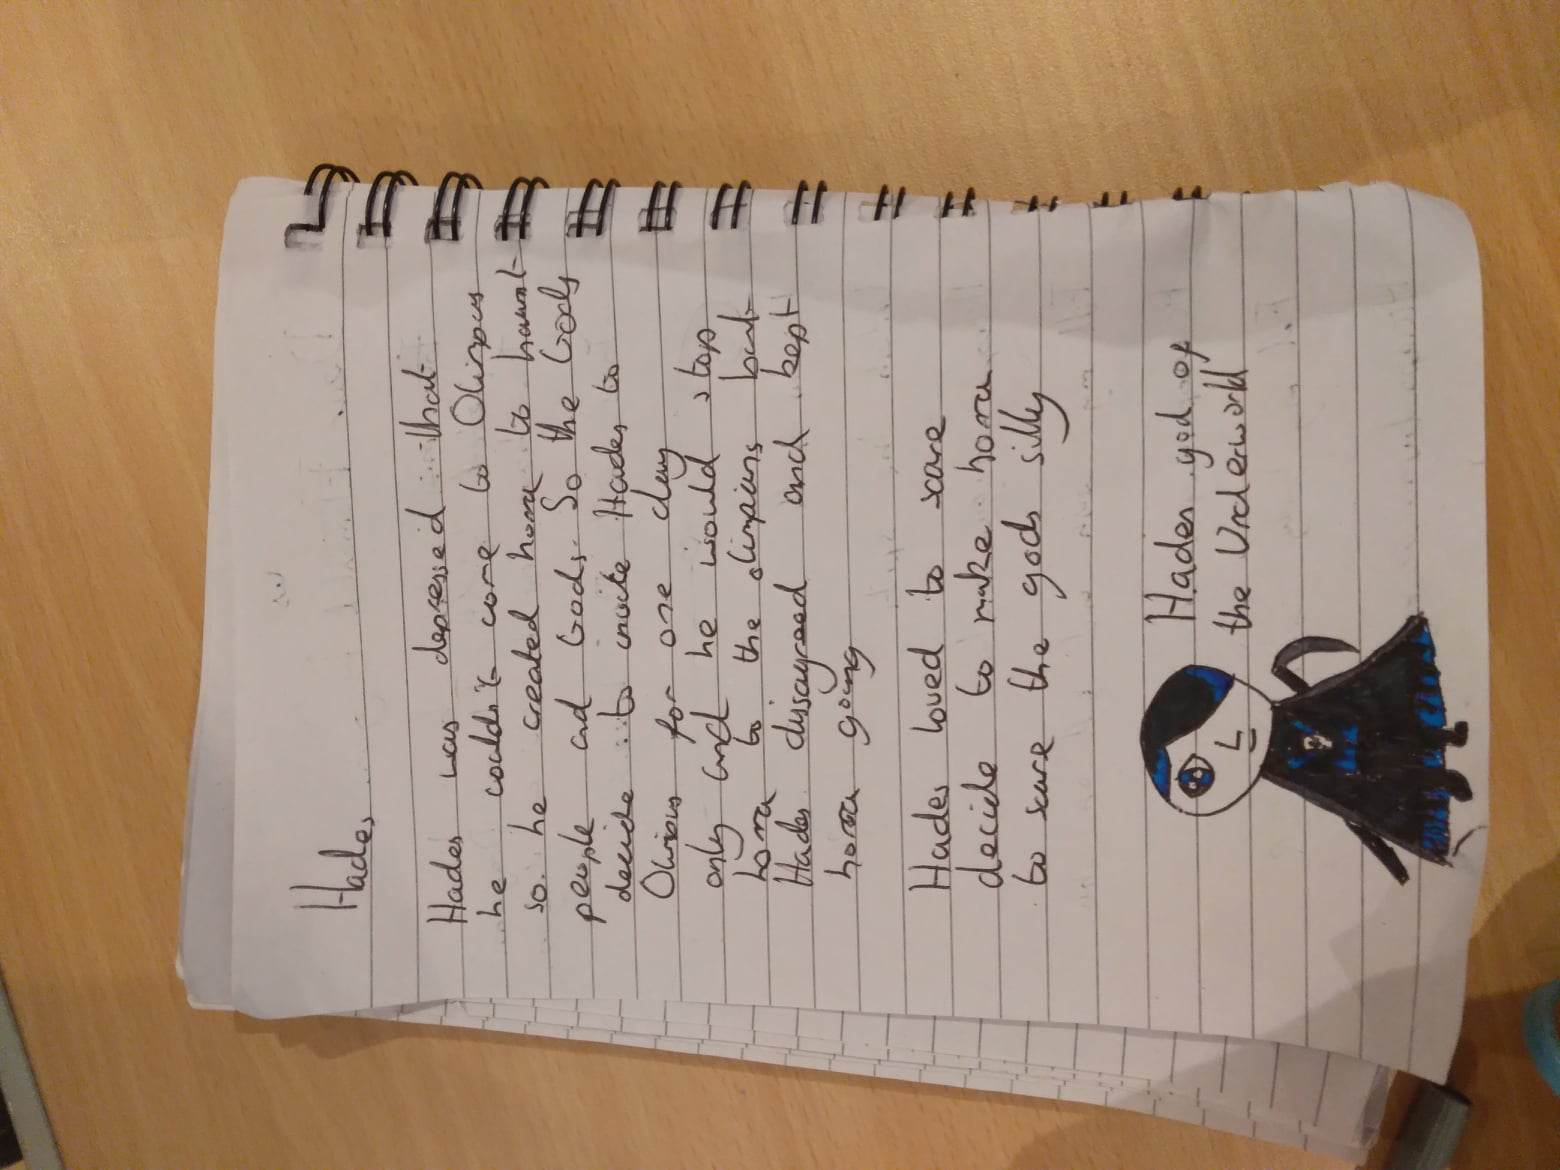 Hades
Hades was depressed that
he couldn't come to Olimpus
so he created horra to haunt
people and Gods. So the Gods
decide to invite Hades to
Olimpus for one day
only and he would stop
horra to the olimpians but
Hades dissagreed and kept
horra going
Hades loved to scare
decide to make horra
to scare the gods silly
Hades god of
the Underworld